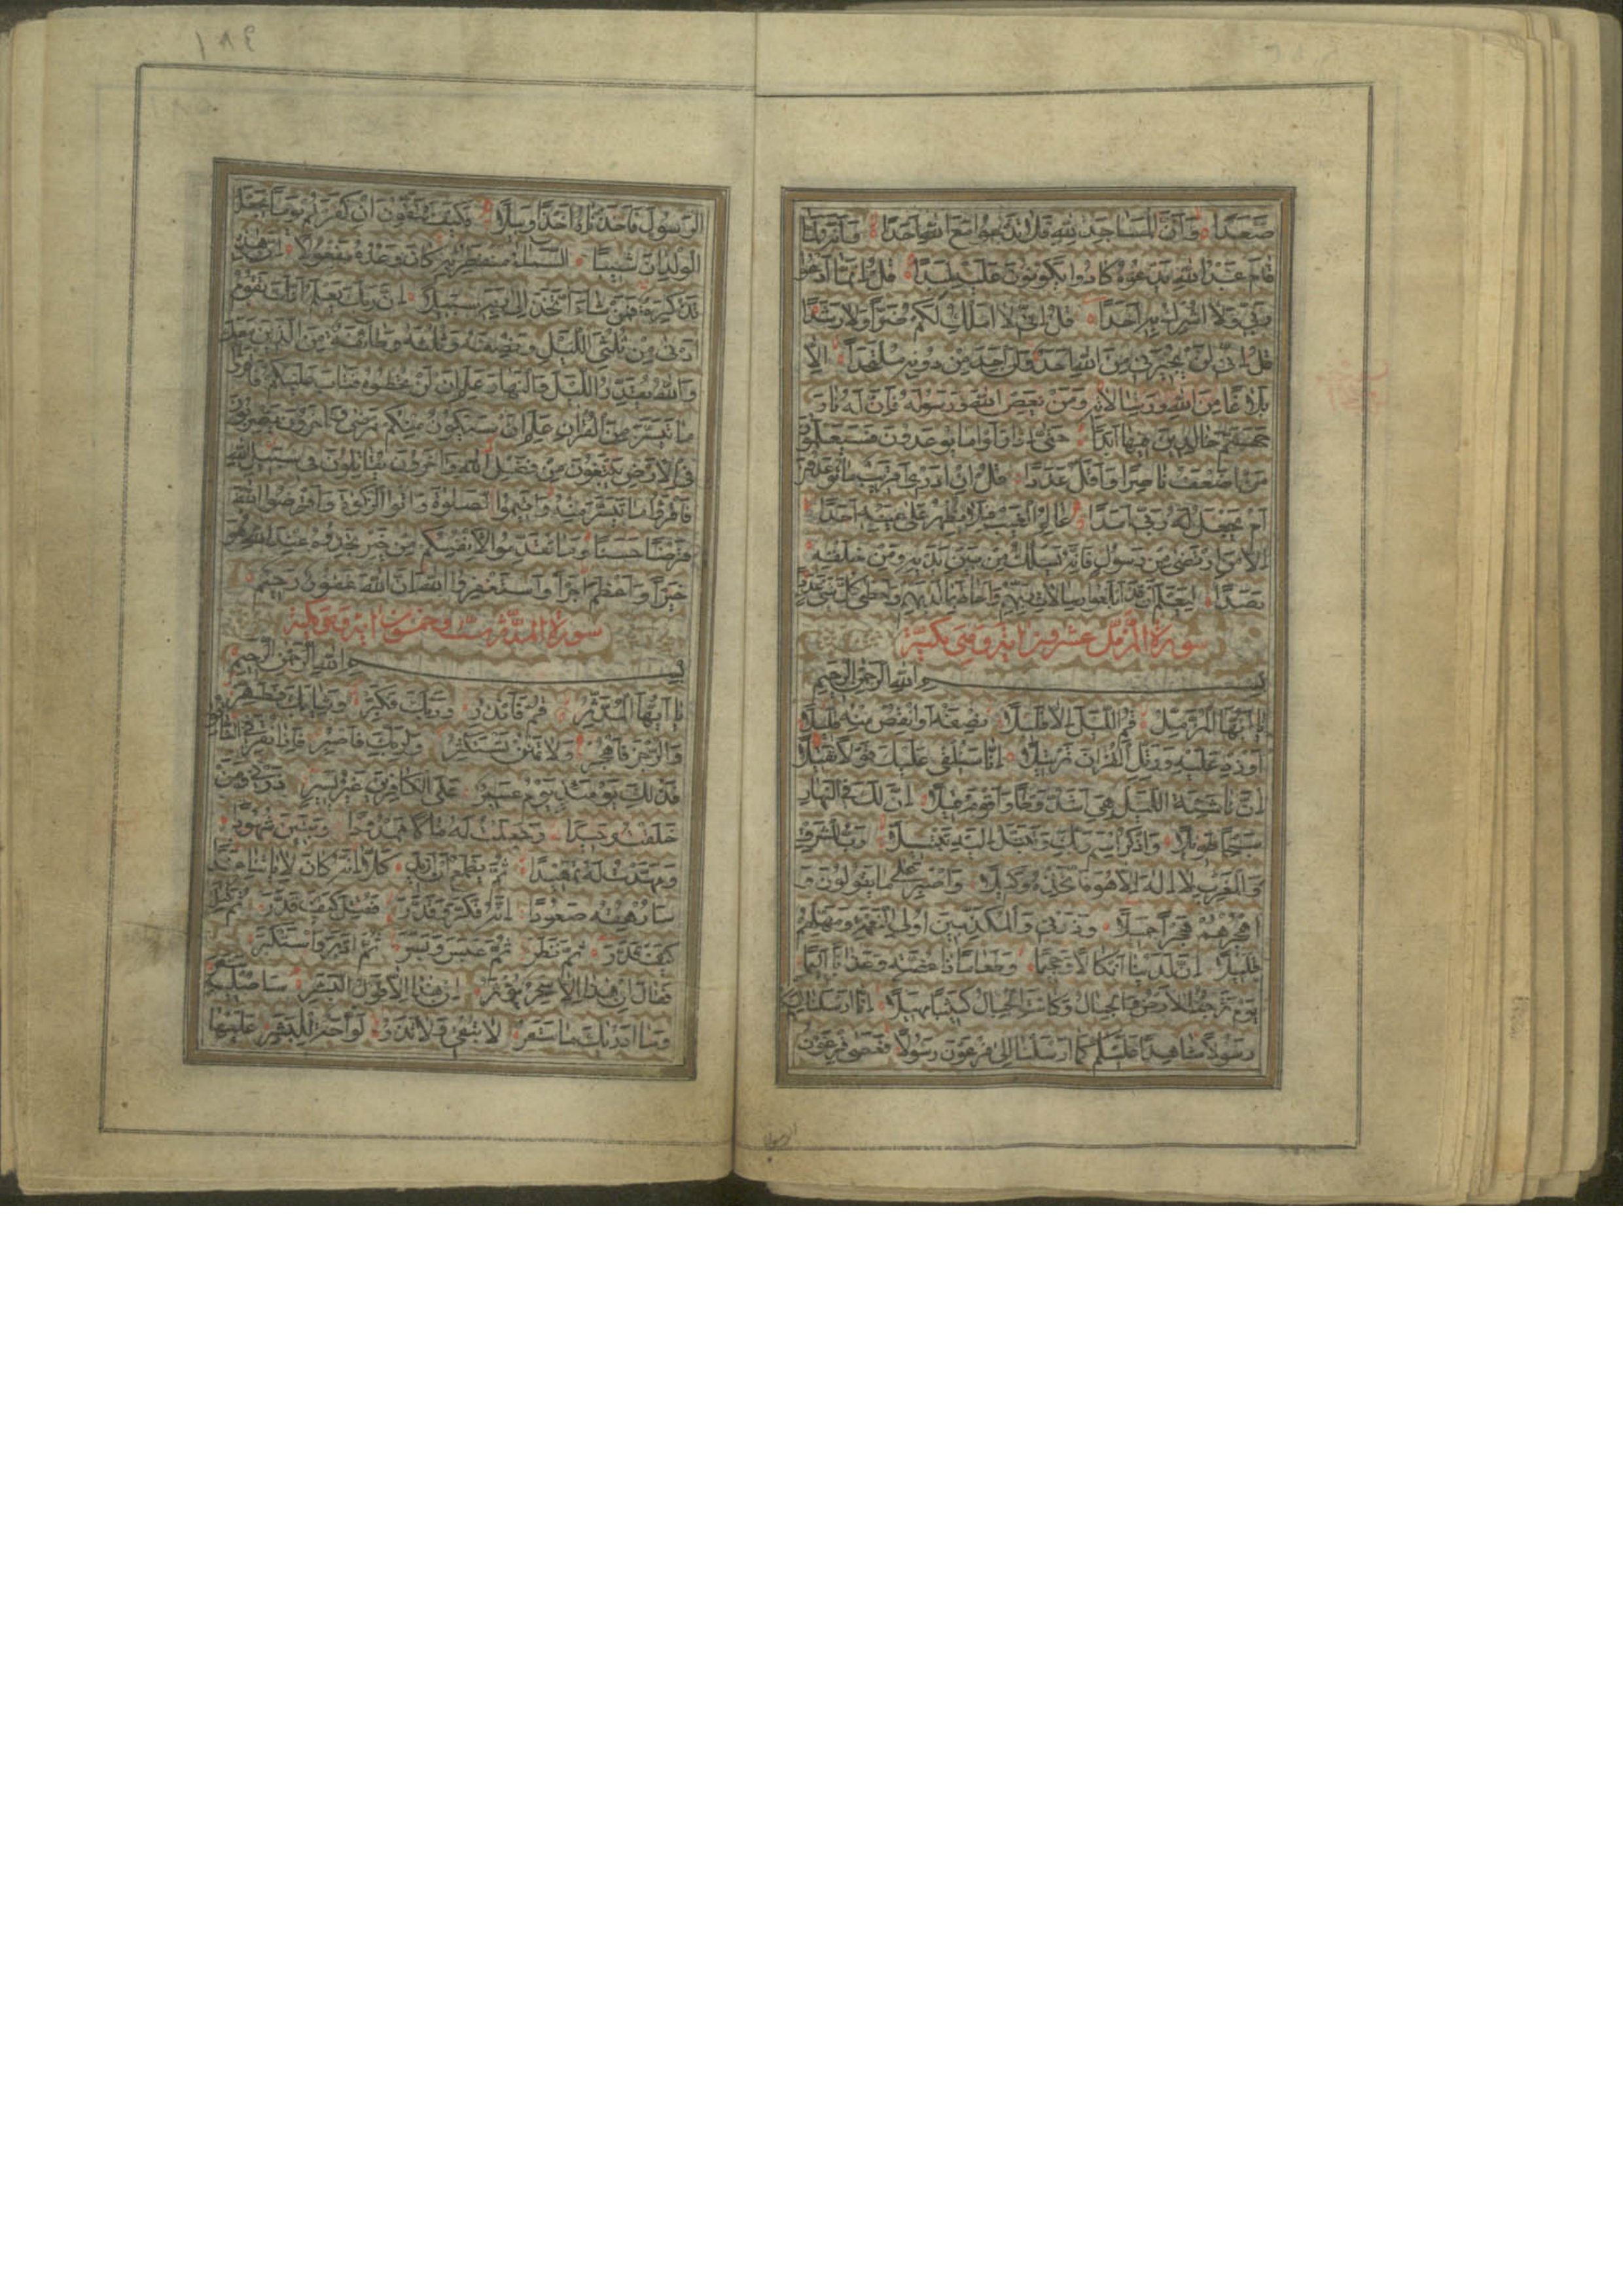 صَعَدًا وَأَنَّ الْمَسَاجِدَ لِلّٰهِ فَلَا تَدْعُوا مَعَ اللّٰهِ أَحَدًا وَأَنَّهُ لَمَّا
قَامَ عَبْدُ اللّٰهِ يَدْعُوهُ كَادُوا يَكُونُونَ عَلَيْهِ لِبَدًا قُلْ إِنَّمَا أَدْعُوا
رَبِّي وَلَا أُشْرِكُ بِهِ أَحَدًا قُلْ إِنِّي لَا أَمْلِكُ لَكُمْ ضَرًّا وَلَا رَشَدًا
قُلْ إِنِّي لَنْ يُجِيرَنِي مِنَ اللّٰهِ أَحَدٌ وَلَنْ أَجِدَ مِنْ دُونِهِ مُلْتَحَدًا إِلَّا
بَلَاغًا مِنَ اللّٰهِ وَرِسَالَاتِهِ وَمَنْ يَعْصِ اللّٰهَ وَرَسُولَهُ فَإِنَّ لَهُ نَارَ
جَهَنَّمَ خَالِدِينَ فِيهَا أَبَدًا حَتَّى إِذَا رَأَوْا مَا يُوعَدُونَ فَسَيَعْلَمُونَ
مَنْ أَضْعَفُ نَاصِرًا وَأَقَلُّ عَدَدًا قُلْ إِنْ أَدْرِي أَقَرِيبٌ مَا تُوعَدُونَ
أَمْ يَجْعَلُ لَهُ رَبِّي أَمَدًا عَالِمُ الْغَيْبِ فَلَا يُظْهِرُ عَلَى غَيْبِهِ أَحَدًا
إِلَّا مَنِ ارْتَضَى مِنْ رَسُولٍ فَإِنَّهُ يَسْلُكُ مِنْ بَيْنِ يَدَيْهِ وَمِنْ خَلْفِهِ
رَصَدًا لِيَعْلَمَ أَنْ قَدْ أَبْلَغُوا رِسَالَاتِ رَبِّهِمْ وَأَحَاطَ بِمَا لَدَيْهِمْ وَأَحْصَى كُلَّ شَيْءٍ عَدَدًا
سورة المزمل عشرون اية وهي مكية
بِسْمِ اللّٰهِ الرَّحْمٰنِ الرَّحِيمِ
يَا أَيُّهَا الْمُزَّمِّلُ قُمِ اللَّيْلَ إِلَّا قَلِيلًا نِصْفَهُ أَوِ انْقُصْ مِنْهُ قَلِيلًا
أَوْ زِدْ عَلَيْهِ وَرَتِّلِ الْقُرْآنَ تَرْتِيلًا إِنَّا سَنُلْقِي عَلَيْكَ قَوْلًا ثَقِيلًا
إِنَّ نَاشِئَةَ اللَّيْلِ هِيَ أَشَدُّ وَطْئًا وَأَقْوَمُ قِيلًا إِنَّ لَكَ فِي النَّهَارِ
سَبْحًا طَوِيلًا وَاذْكُرِ اسْمَ رَبِّكَ وَتَبَتَّلْ إِلَيْهِ تَبْتِيلًا رَبُّ الْمَشْرِقِ
وَالْمَغْرِبِ لَا إِلٰهَ إِلَّا هُوَ فَاتَّخِذْهُ وَكِيلًا وَاصْبِرْ عَلَى مَا يَقُولُونَ وَ
اهْجُرْهُمْ هَجْرًا جَمِيلًا وَذَرْنِي وَالْمُكَذِّبِينَ أُولِي النَّعْمَةِ وَمَهِّلْهُمْ
قَلِيلًا إِنَّ لَدَيْنَا أَنْكَالًا وَجَحِيمًا وَطَعَامًا ذَا غُصَّةٍ وَعَذَابًا أَلِيمًا
يَوْمَ تَرْجُفُ الْأَرْضُ وَالْجِبَالُ وَكَانَتِ الْجِبَالُ كَثِيبًا مَهِيلًا إِنَّا أَرْسَلْنَا إِلَيْكُمْ
رَسُولًا شَاهِدًا عَلَيْكُمْ كَمَا أَرْسَلْنَا إِلَى فِرْعَوْنَ رَسُولًا فَعَصَى فِرْعَوْنُ
الرسول
١٨٩
الرَّسُولَ فَأَخَذْنَاهُ أَخْذًا وَبِيلًا فَكَيْفَ تَتَّقُونَ إِنْ كَفَرْتُمْ يَوْمًا يَجْعَلُ
الْوِلْدَانَ شِيبًا السَّمَاءُ مُنْفَطِرٌ بِهِ كَانَ وَعْدُهُ مَفْعُولًا إِنَّ هٰذِهِ
تَذْكِرَةٌ فَمَنْ شَاءَ اتَّخَذَ إِلَى رَبِّهِ سَبِيلًا إِنَّ رَبَّكَ يَعْلَمُ أَنَّكَ تَقُومُ
أَدْنَى مِنْ ثُلُثَيِ اللَّيْلِ وَنِصْفَهُ وَثُلُثَهُ وَطَائِفَةٌ مِنَ الَّذِينَ مَعَكَ
وَاللّٰهُ يُقَدِّرُ اللَّيْلَ وَالنَّهَارَ عَلِمَ أَنْ لَنْ تُحْصُوهُ فَتَابَ عَلَيْكُمْ فَاقْرَؤُا
مَا تَيَسَّرَ مِنَ الْقُرْآنِ عَلِمَ أَنْ سَيَكُونُ مِنْكُمْ مَرْضَى وَآخَرُونَ يَضْرِبُونَ
فِي الْأَرْضِ يَبْتَغُونَ مِنْ فَضْلِ اللّٰهِ وَآخَرُونَ يُقَاتِلُونَ فِي سَبِيلِ اللّٰهِ
فَاقْرَؤُا مَا تَيَسَّرَ مِنْهُ وَأَقِيمُوا الصَّلٰوةَ وَآتُوا الزَّكٰوةَ وَأَقْرِضُوا اللّٰهَ
قَرْضًا حَسَنًا وَمَا تُقَدِّمُوا لِأَنْفُسِكُمْ مِنْ خَيْرٍ تَجِدُوهُ عِنْدَ اللّٰهِ هُوَ
خَيْرًا وَأَعْظَمَ أَجْرًا وَاسْتَغْفِرُوا اللّٰهَ إِنَّ اللّٰهَ غَفُورٌ رَحِيمٌ
سورة المدثر ست وخمسون اية وهي مكية
بِسْمِ اللّٰهِ الرَّحْمٰنِ الرَّحِيمِ
يَا أَيُّهَا الْمُدَّثِّرُ قُمْ فَأَنْذِرْ وَرَبَّكَ فَكَبِّرْ وَثِيَابَكَ فَطَهِّرْ
وَالرُّجْزَ فَاهْجُرْ وَلَا تَمْنُنْ تَسْتَكْثِرُ وَلِرَبِّكَ فَاصْبِرْ فَإِذَا نُقِرَ فِي النَّاقُورِ
فَذٰلِكَ يَوْمَئِذٍ يَوْمٌ عَسِيرٌ عَلَى الْكَافِرِينَ غَيْرُ يَسِيرٍ ذَرْنِي وَمَنْ
خَلَقْتُ وَحِيدًا وَجَعَلْتُ لَهُ مَالًا مَمْدُودًا وَبَنِينَ شُهُودًا
وَمَهَّدْتُ لَهُ تَمْهِيدًا ثُمَّ يَطْمَعُ أَنْ أَزِيدَ كَلَّا إِنَّهُ كَانَ لِآيَاتِنَا عَنِيدًا
سَأُرْهِقُهُ صَعُودًا إِنَّهُ فَكَّرَ وَقَدَّرَ فَقُتِلَ كَيْفَ قَدَّرَ ثُمَّ قُتِلَ
كَيْفَ قَدَّرَ ثُمَّ نَظَرَ ثُمَّ عَبَسَ وَبَسَرَ ثُمَّ أَدْبَرَ وَاسْتَكْبَرَ
فَقَالَ إِنْ هٰذَا إِلَّا سِحْرٌ يُؤْثَرُ إِنْ هٰذَا إِلَّا قَوْلُ الْبَشَرِ سَأُصْلِيهِ سَقَرَ
وَمَا أَدْرٰيكَ مَا سَقَرُ لَا تُبْقِي وَلَا تَذَرُ لَوَّاحَةٌ لِلْبَشَرِ عَلَيْهَا